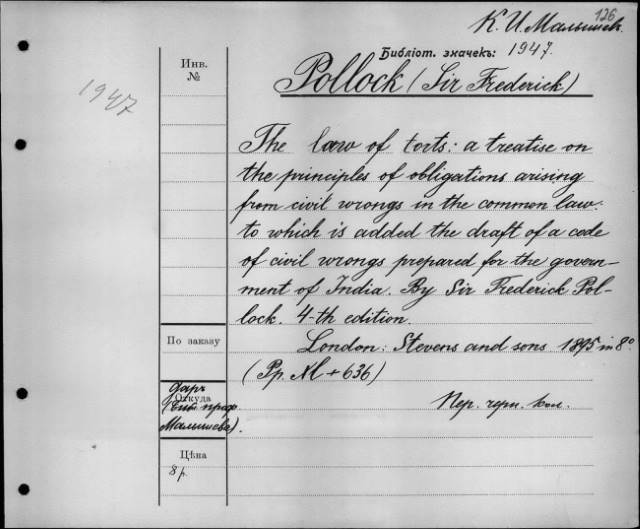 126
К. И. Малышев.
Библіот. значекъ: 1947.
1947
Инв.
№
Pollock (Sir Frederick)
The law of torts: a treatise on
the principles of obligations arising
from civil wrongs in the common law:
to which is added the draft of a code
of civil wrongs prepared for the govern-
ment of India. By Sir Frederick Pol-
lock. 4-th edition.
По заказу
London: Stevens and sons 1895 in 8°
(Pp. XL + 636)
даръ
Откуда
проф.
Малышева).
Пер. черн. кол.
Цѣна
8 р.